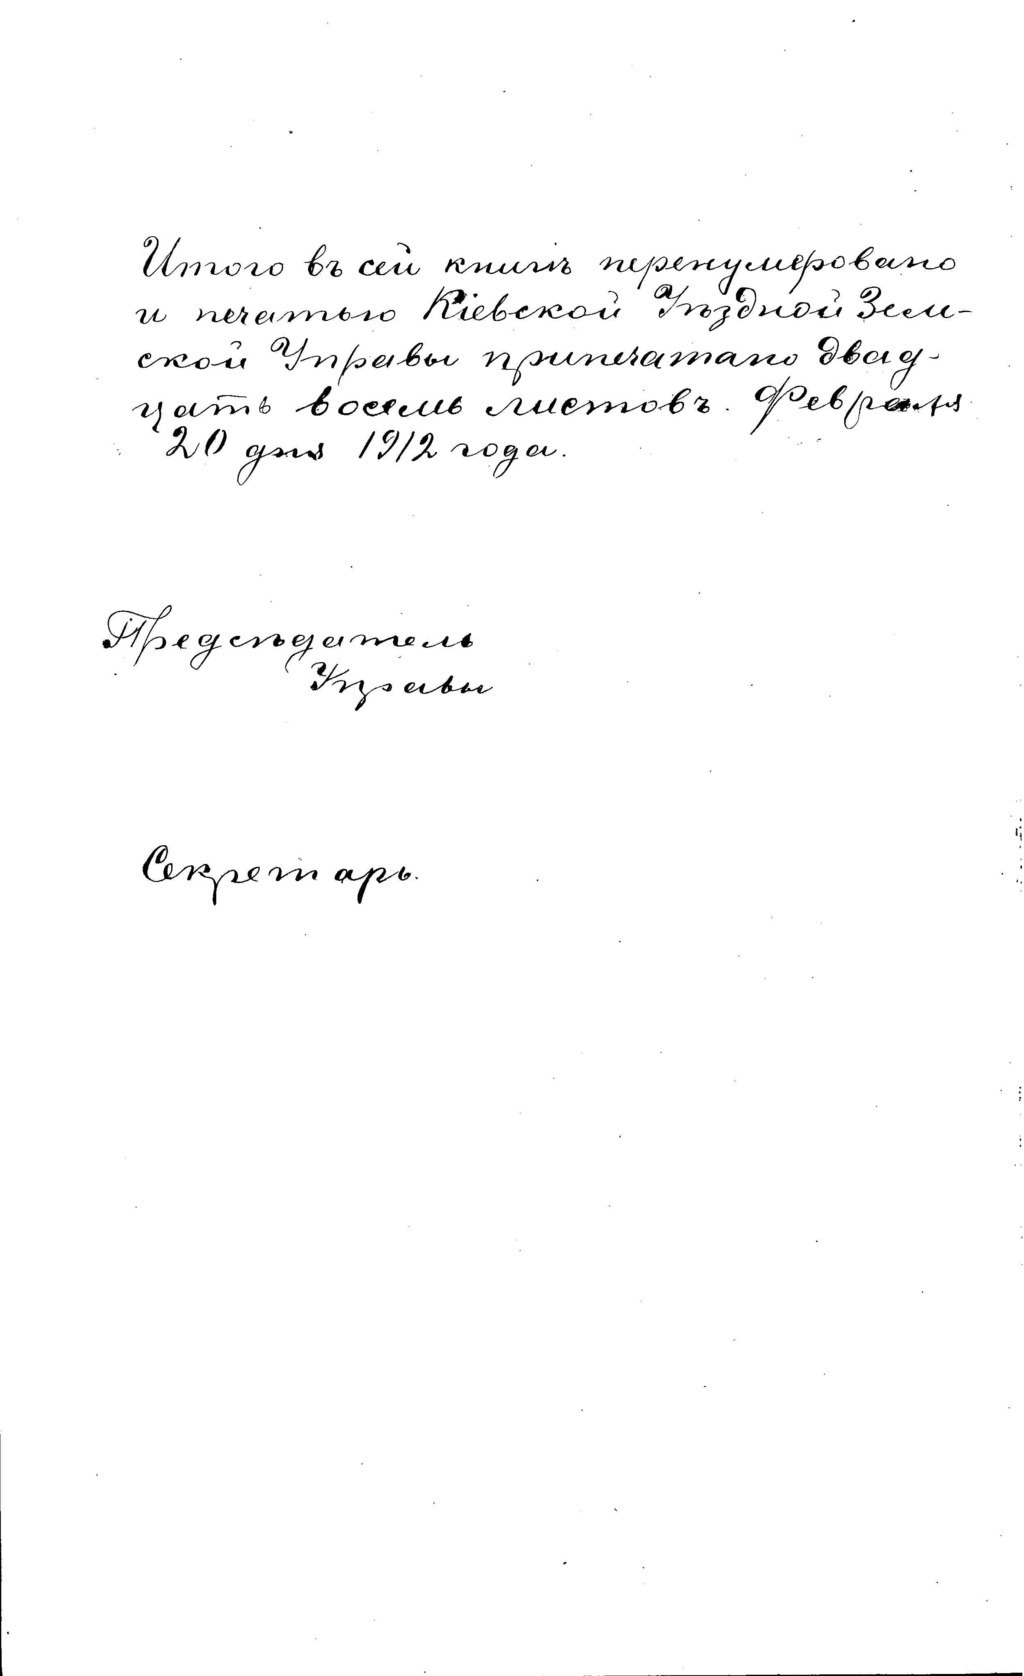 Итого въ сей книгѣ перенумеровано
и печатью Кіевской Уѣздной Зем-
ской Управы припечатано двад-
цать восемь листовъ. Февраля
20 дня 1912 года.
Предсѣдатель
Управы
Секретарь.